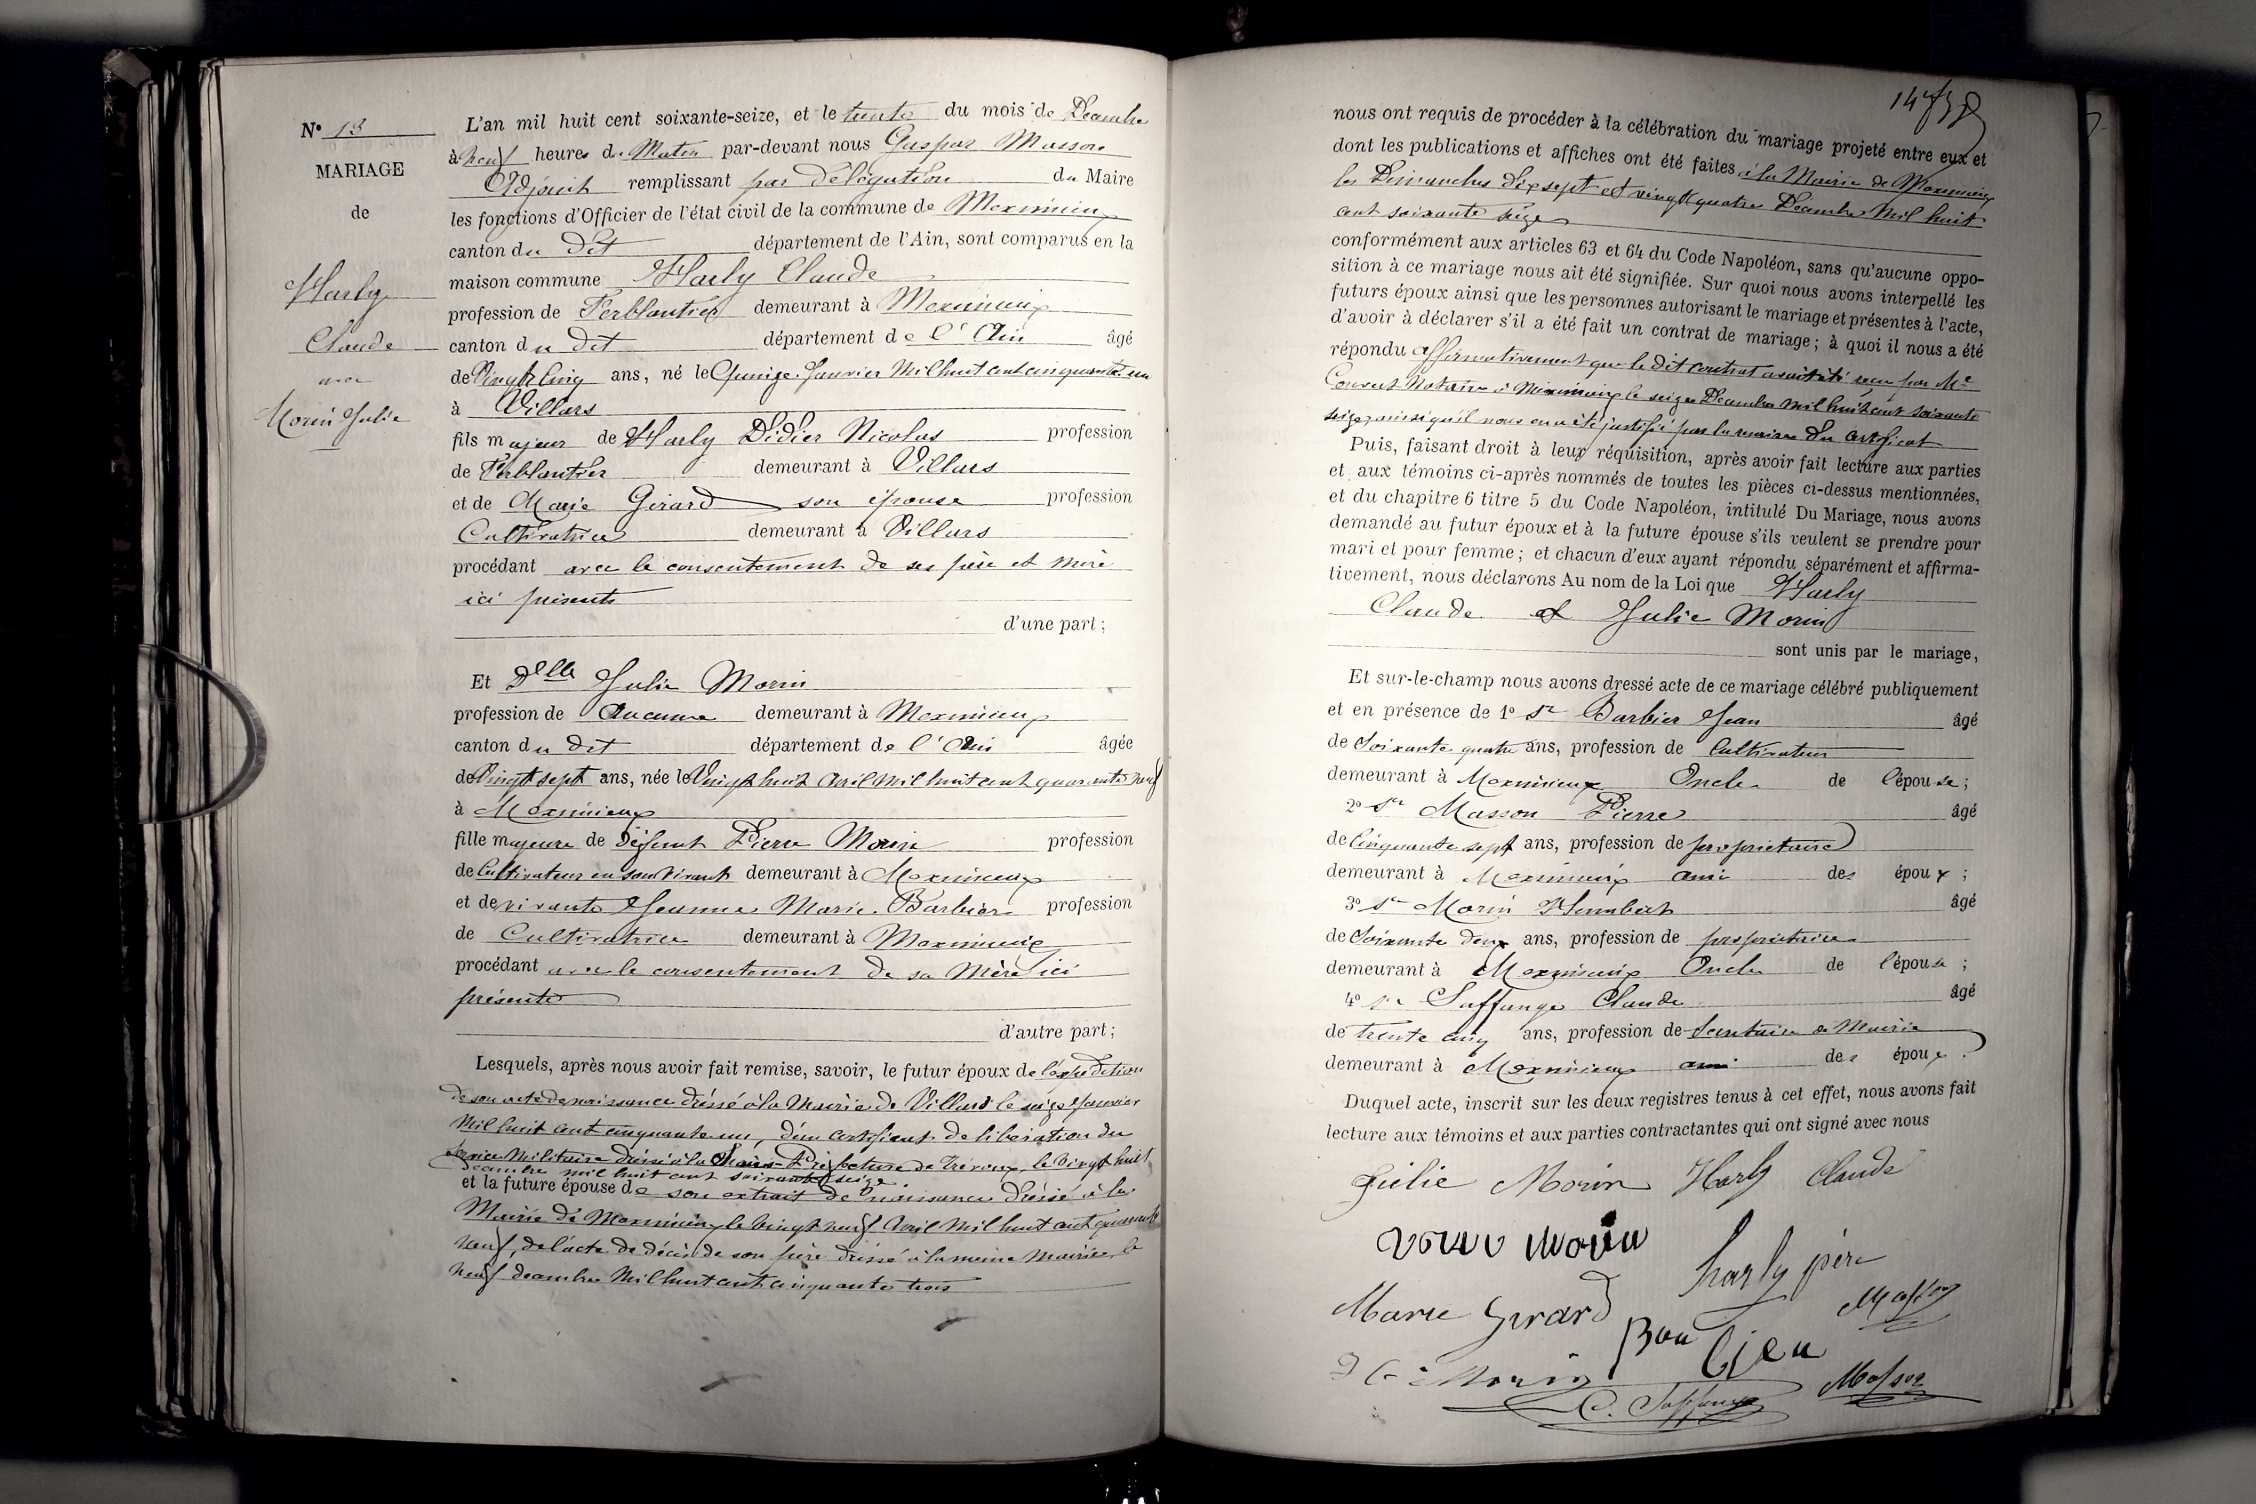 N° 13
MARIAGE
de
Harly
Claude
avec
Morin Julie
L'an mil huit cent soixante-seize, et le trente du mois de Décembre
à neuf heures du Matin par-devant nous Gaspar Masson
Adjoint remplissant par délégation du Maire
les fonctions d'Officier de l'état civil de la commune de Meximieux
canton du dit département de l'Ain, sont comparus en la
maison commune Harly Claude
profession de Ferblantier demeurant à Meximieux
canton du dit département de l'Ain âgé
de Vingt cinq ans, né le Quinze Janvier Mil huit cent cinquante un
à Villars
fils majeur de Harly Didier Nicolas profession
de Ferblantier demeurant à Villars
et de Marie Girard son épouse profession
Cultivatrice demeurant à Villars
procédant avec le consentement de ses père et mère
ici présents
d'une part;
Et Delle Julie Morin
profession de Aucune demeurant à Meximieux
canton du dit département de l'Ain âgée
de Vingt sept ans, née le Vingt huit Avril Mil huit cent quarante neuf
à Meximieux
fille majeure de Défunt Pierre Morin profession
de Cultivateur en son vivant demeurant à Meximieux
et de vivante Jeanne Marie Barbier profession
de Cultivatrice demeurant à Meximieux
procédant avec le consentement de sa Mère ici
présente
d'autre part;
Lesquels, après nous avoir fait remise, savoir, le futur époux de l'expédition
de son acte de naissance dressé à la Mairie de Villars le seize Janvier
Mil huit cent cinquante un, d'un certificat de libération du
service Militaire dressé à la Sous-Préfecture de Trévoux, le vingt huit
décembre mil huit cent soixante seize.
et la future épouse de son extrait de naissance dressé à la
Mairie de Meximieux le vingt neuf Avril Mil huit cent quarante
neuf, de l'acte de décès de son père dressé à la même Mairie, le
neuf décembre Mil huit cent cinquante trois
nous ont requis de procéder à la célébration du mariage projeté entre eux et
dont les publications et affiches ont été faites à la Mairie de Meximieux
les Dimanches dix sept et vingt quatre Décembre Mil huit
cent soixante seize
conformément aux articles 63 et 64 du Code Napoléon, sans qu'aucune oppo-
sition à ce mariage nous ait été signifiée. Sur quoi nous avons interpellé les
futurs époux ainsi que les personnes autorisant le mariage et présentes à l'acte,
d'avoir à déclarer s'il a été fait un contrat de mariage; à quoi il nous a été
répondu affirmativement que le dit contrat avait été reçu par Me
Convert Notaire à Meximieux le seize Décembre Mil huit cent soixante
seize, ainsi qu'il nous en a été justifié par la remise du certificat
Puis, faisant droit à leur réquisition, après avoir fait lecture aux parties
et aux témoins ci-après nommés de toutes les pièces ci-dessus mentionnées,
et du chapitre 6 titre 5 du Code Napoléon, intitulé Du Mariage, nous avons
demandé au futur époux et à la future épouse s'ils veulent se prendre pour
mari et pour femme; et chacun d'eux ayant répondu séparément et affirma-
tivement, nous déclarons Au nom de la Loi que Harly
Claude et Julie Morin
sont unis par le mariage,
Et sur-le-champ nous avons dressé acte de ce mariage célébré publiquement
et en présence de 1° Sr Barbier Jean âgé
de Soixante quatre ans, profession de Cultivateur
demeurant à Meximieux Oncle de l'épouse;
2° Sr Masson Pierre âgé
de Cinquante sept ans, profession de propriétaire
demeurant à Meximieux ami des époux;
3° Sr Morin Humbert âgé
de Soixante deux ans, profession de propriétaire
demeurant à Meximieux Oncle de l'épouse;
4° Sr Saffange Claude âgé
de trente cinq ans, profession de Secrétaire de Mairie
demeurant à Meximieux ami des époux.
Duquel acte, inscrit sur les deux registres tenus à cet effet, nous avons fait
lecture aux témoins et aux parties contractantes qui ont signé avec nous
Julie Morin Harly Claude
veuve Morin
harly père
Marie Girard
Masson
Morin
C. Saffange
Masson